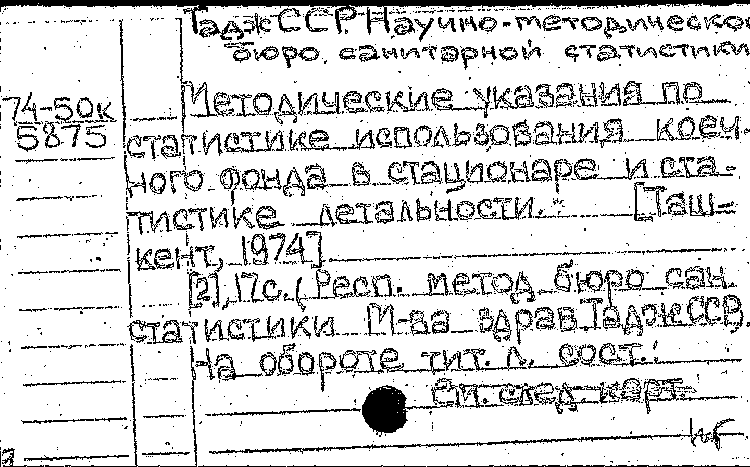 ТаджССР. Научно-методическое
бюро санитарной статистики
74-50к
5875
Методические указания по
статистике использования коеч-
ного фонда в стационаре и ста-
тистике летальности. [Таш-
кент, 1974]
[2], 17с. (Респ. метод. бюро сан.
статистики М-ва здрав. ТаджССР).
На обороте тит. л. сост.:
См. след. карт.